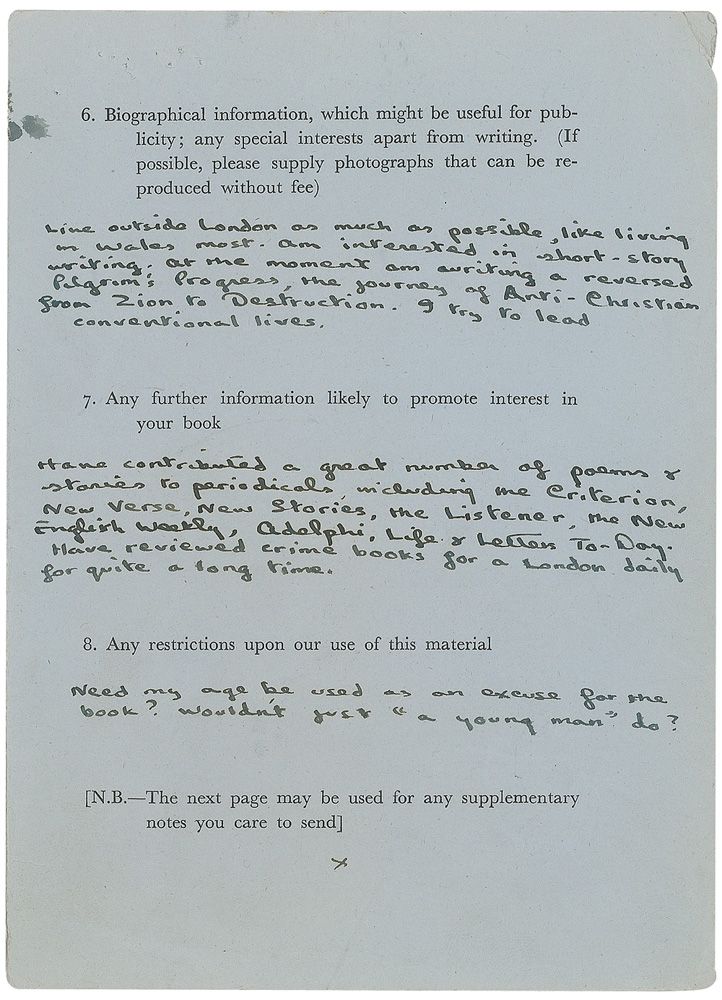 6. Biographical information, which might be useful for pub-
licity; any special interests apart from writing. (If
possible, please supply photographs that can be re-
produced without fee)
Live outside London as much as possible, like living
in Wales most. Am interested in short-story
writing. At the moment am writing a reversed
Pilgrim's Progress, the journey of Anti-Christian
from Zion to Destruction. I try to lead
conventional lives.
7. Any further information likely to promote interest in
your book
Have contributed a great number of poems &
stories to periodicals, including the Criterion,
New Verse, New Stories, the Listener, the New
English Weekly, Adelphi, Life & Letters To-Day.
Have reviewed crime books for a London daily
for quite a long time.
8. Any restrictions upon our use of this material
Need my age be used as an excuse for the
book? Wouldn't just "a young man" do?
[N.B.—The next page may be used for any supplementary
notes you care to send]
x